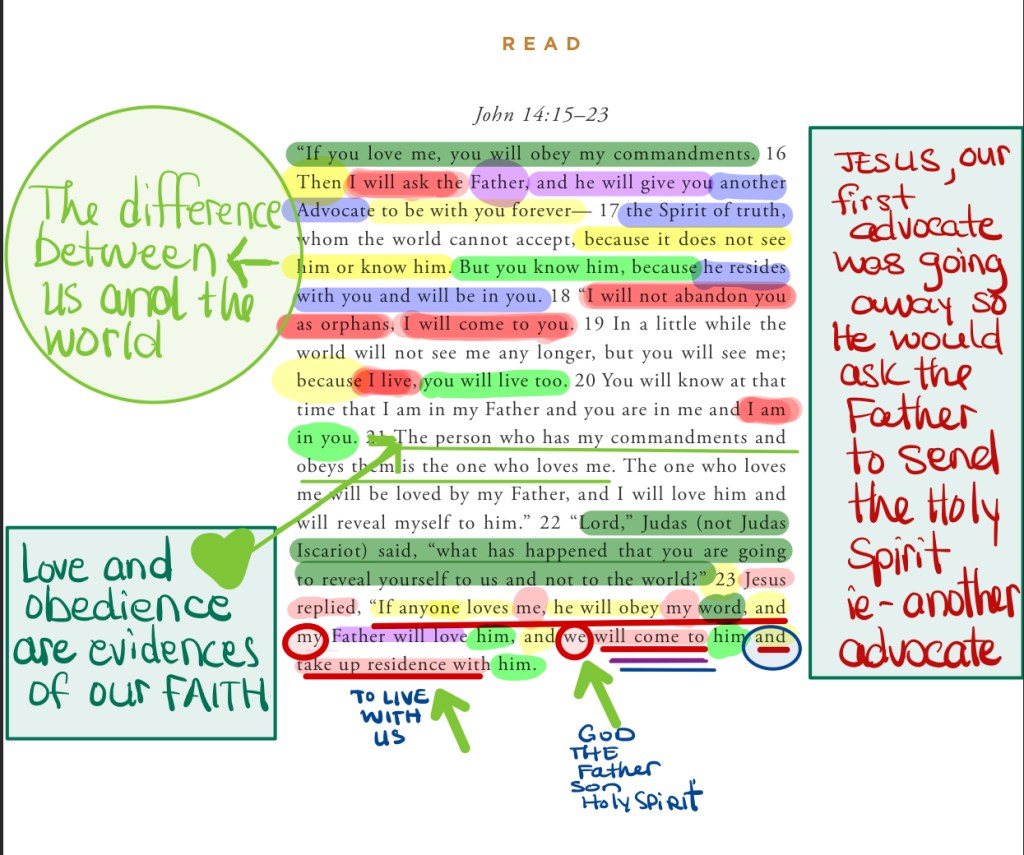 READ
John 14:15–23
“If you love me, you will obey my commandments. 16
Then I will ask the Father, and he will give you another
Advocate to be with you forever— 17 the Spirit of truth,
whom the world cannot accept, because it does not see
him or know him. But you know him, because he resides
with you and will be in you. 18 “I will not abandon you
as orphans, I will come to you. 19 In a little while the
world will not see me any longer, but you will see me;
because I live, you will live too. 20 You will know at that
time that I am in my Father and you are in me and I am
in you. 21 The person who has my commandments and
obeys them is the one who loves me. The one who loves
me will be loved by my Father, and I will love him and
will reveal myself to him.” 22 “Lord,” Judas (not Judas
Iscariot) said, “what has happened that you are going
to reveal yourself to us and not to the world?” 23 Jesus
replied, “If anyone loves me, he will obey my word, and
my Father will love him, and we will come to him and
take up residence with him.
The difference
between
us and the
world
Love and
obedience
are evidences
of our FAITH
TO LIVE
WITH
US
GOD
THE
Father
Son
Holy SPIRIT
JESUS, our
first
advocate
was going
away so
He would
ask the
Father
to send
the Holy
Spirit
ie - another
advocate